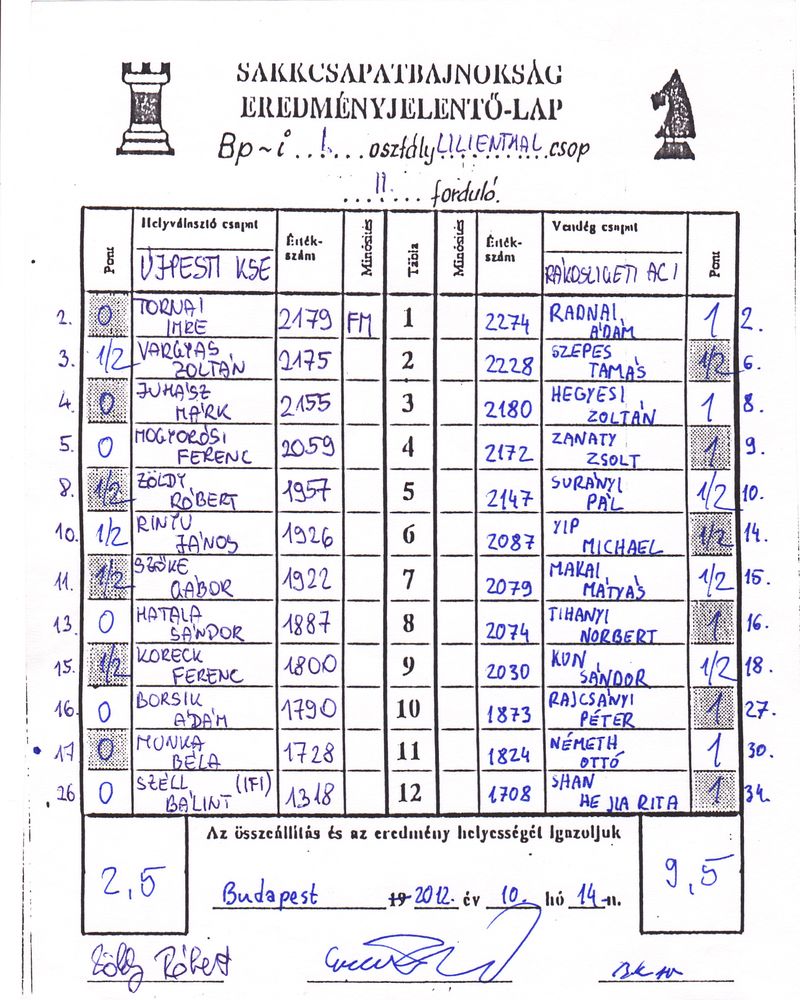 SAKKCSAPATBAJNOKSÁG
EREDMÉNYJELENTŐ-LAP
Bp-i ..I.... osztály LILIENTHAL csop
II. forduló.
Pont Helyválasztó csapat Érték-szám Minősítés Tábla Minősítés Érték-szám Vendég csapat Pont
ÚJPESTI KSE RÁKOSLIGETI AC I
2. 0 TORNAI IMRE 2179 FM 1 2274 RADNAI ÁDÁM 1 2.
3. 1/2 VARGYAS ZOLTÁN 2175 2 2228 SZEPES TAMÁS 1/2 6.
4. 0 JUHÁSZ MÁRK 2155 3 2180 HEGYESI ZOLTÁN 1 8.
5. 0 MOGYORÓSI FERENC 2059 4 2172 ZANATY ZSOLT 1 9.
8. 1/2 ZÖLDY RÓBERT 1957 5 2147 SURÁNYI PÁL 1/2 10.
10. 1/2 RINYU JÁNOS 1926 6 2087 YIP MICHAEL 1/2 14.
11. 1/2 SZŐKE GÁBOR 1922 7 2079 MAKAI MÁTYÁS 1/2 15.
13. 0 HATALA SÁNDOR 1887 8 2074 TIHANYI NORBERT 1 16.
15. 1/2 KORECK FERENC 1800 9 2030 KUN SÁNDOR 1/2 18.
16. 0 BORSIK ÁDÁM 1790 10 1873 RAJCSÁNYI PÉTER 1 27.
17 0 MUNKA BÉLA 1728 11 1824 NÉMETH OTTÓ 1 30.
26 0 SZÉLL (IFI) BÁLINT 1318 12 1708 SHAN HE JIA RITA 1 34.
Az összeállítás és az eredmény helyességét igazoljuk
2,5 9,5
Budapest 19 2012. év 10. hó 14-n.
Zöldy Róbert